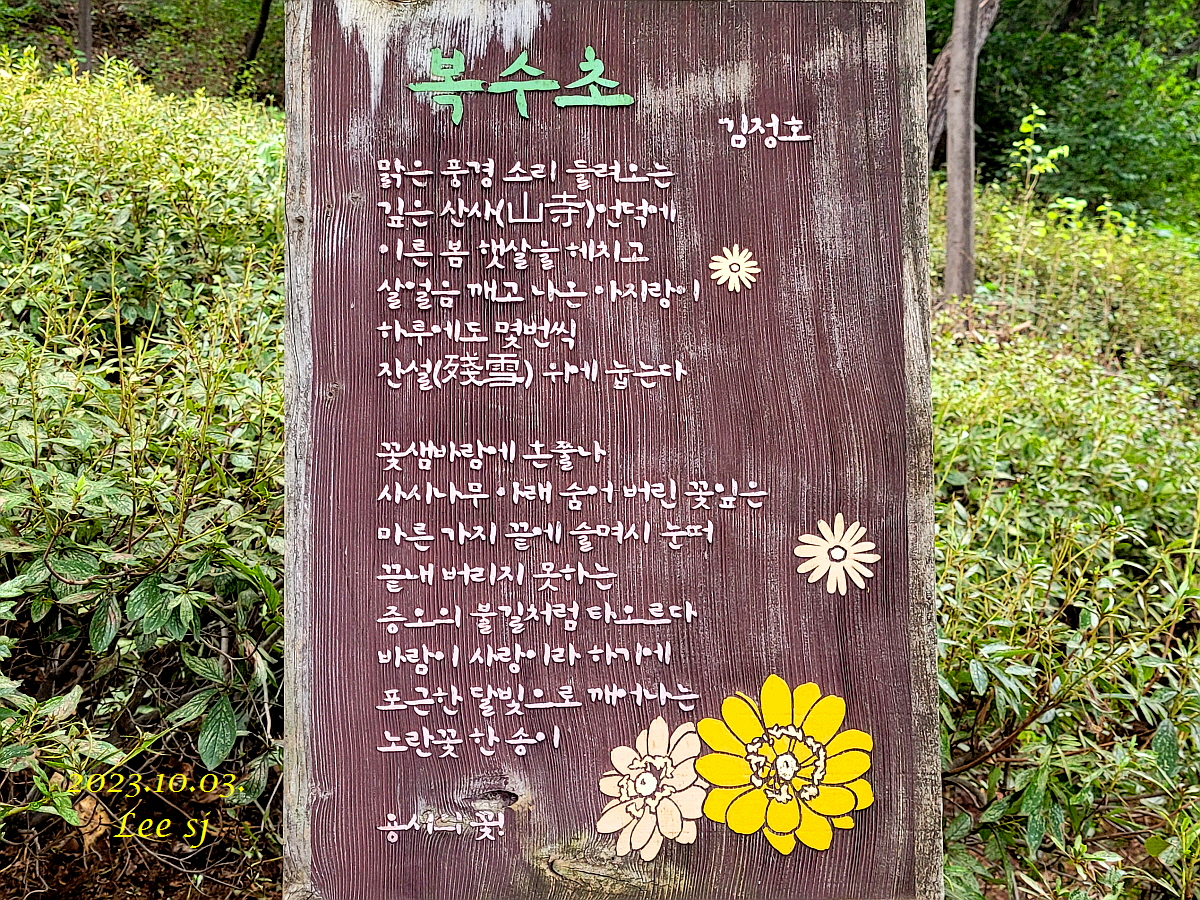 복수초
김정호
맑은 풍경 소리 들려오는
깊은 산사(山寺)언덕에
이른 봄 햇살을 헤치고
살얼음 깨고 나온 아지랑이
하루에도 몇번씩
잔설(殘雪) 위에 눕는다
꽃샘바람에 혼쭐나
사시나무 아래 숨어 버린 꽃잎은
마른 가지 끝에 슬며시 눈떠
끝내 버리지 못하는
증오의 불길처럼 타오르다
바람이 사랑이라 하기에
포근한 달빛으로 깨어나는
노란꽃 한 송이
용서의 꽃!
2023.10.03.
Lee sj